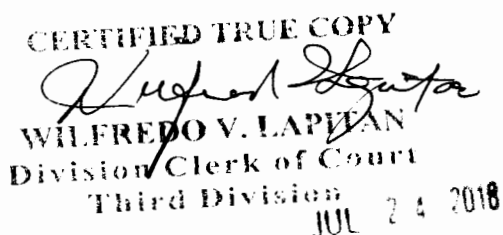 CERTIFIED TRUE COPY
WILFREDO V. LAPITAN
Division Clerk of Court
Third Division
JUL 24 2018